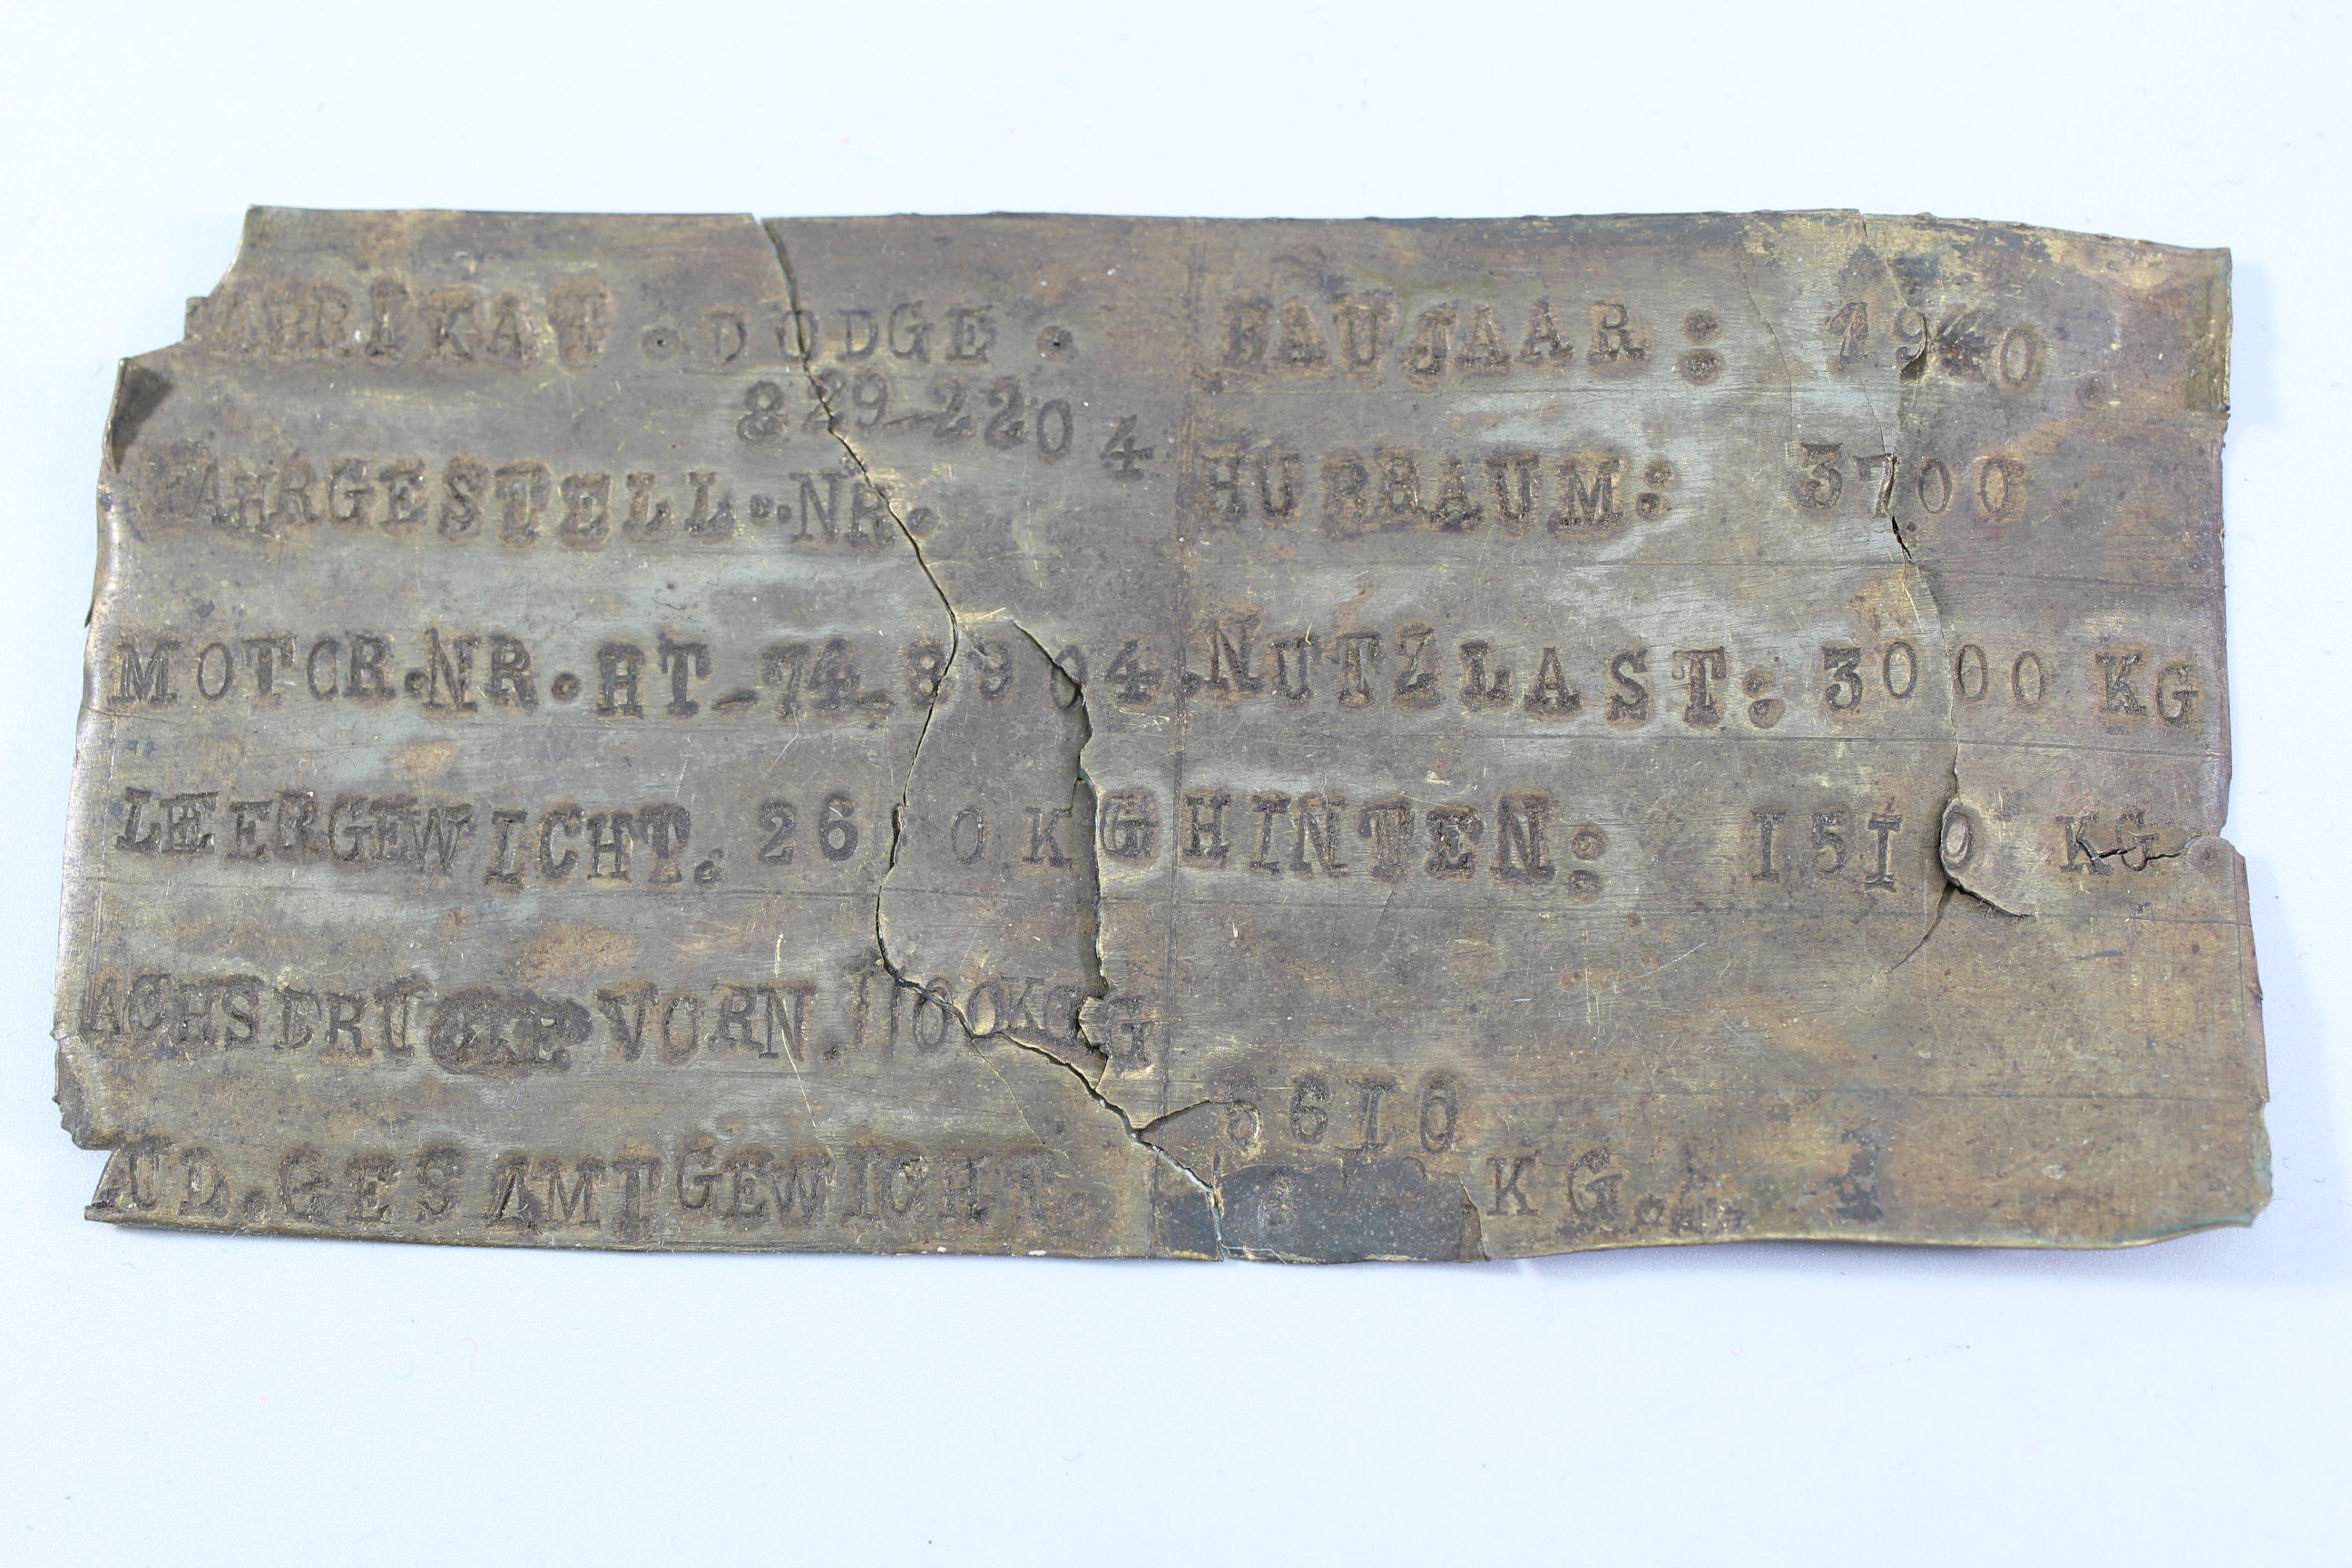 ABRIKAT . DODGE . BAUJAAR : 1940
829-2204
FAHRGESTELL . . NR. HUBRAUM: 3700
MOTOR.NR.HT-74-8904. NUTZLAST: 3000 KG
LEERGEWICHT. 26 0 KG HINTEN: 1510 KG
VORN. 1100KG
5610
UL.GESAMTGEWICHT. KG.